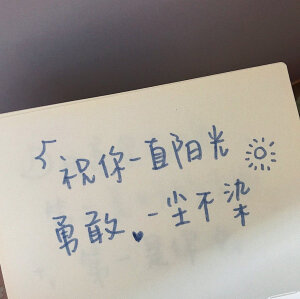 祝你一直阳光
勇敢 一尘不染